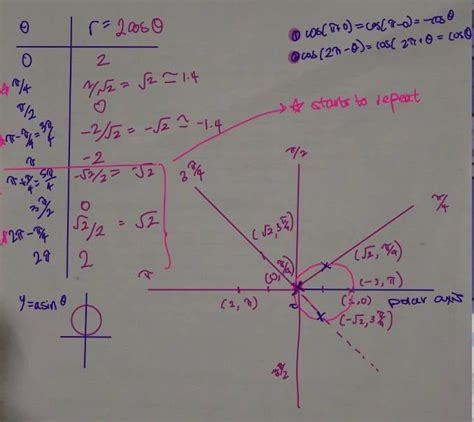 θ r = 2cosθ
0 2
π/4 2/√2 = √2 ≃ 1.4
π/2 0
π-π/4 = 3π/4 -2/√2 = -√2 ≃ -1.4
π -2
π+π/4 = 5π/4 -√2/2 = -√2
3π/2 0
2π-π/4 √2/2 = √2
2π 2
y = asinθ
① cos(π+θ) = cos(π-θ) = -cosθ
② cos(2π-θ) = cos(2π+θ = cosθ
☆ starts to repeat
π/2
3π/4
π/4
(√2, 3π/4)
(√2, π/4)
(0, π/2)
(-2, π)
π
(2, π)
(2,0)
polar axis
(-√2, 3π/4)
3π/2